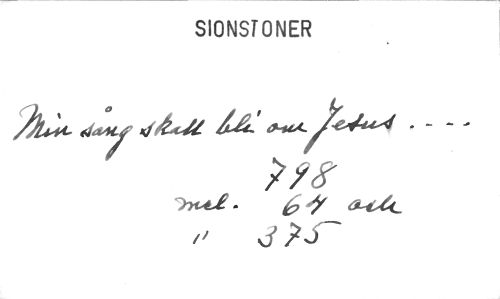 SIONSTONER
Min sång skall bli om Jesus ....
798
mel. 64 och
" 375